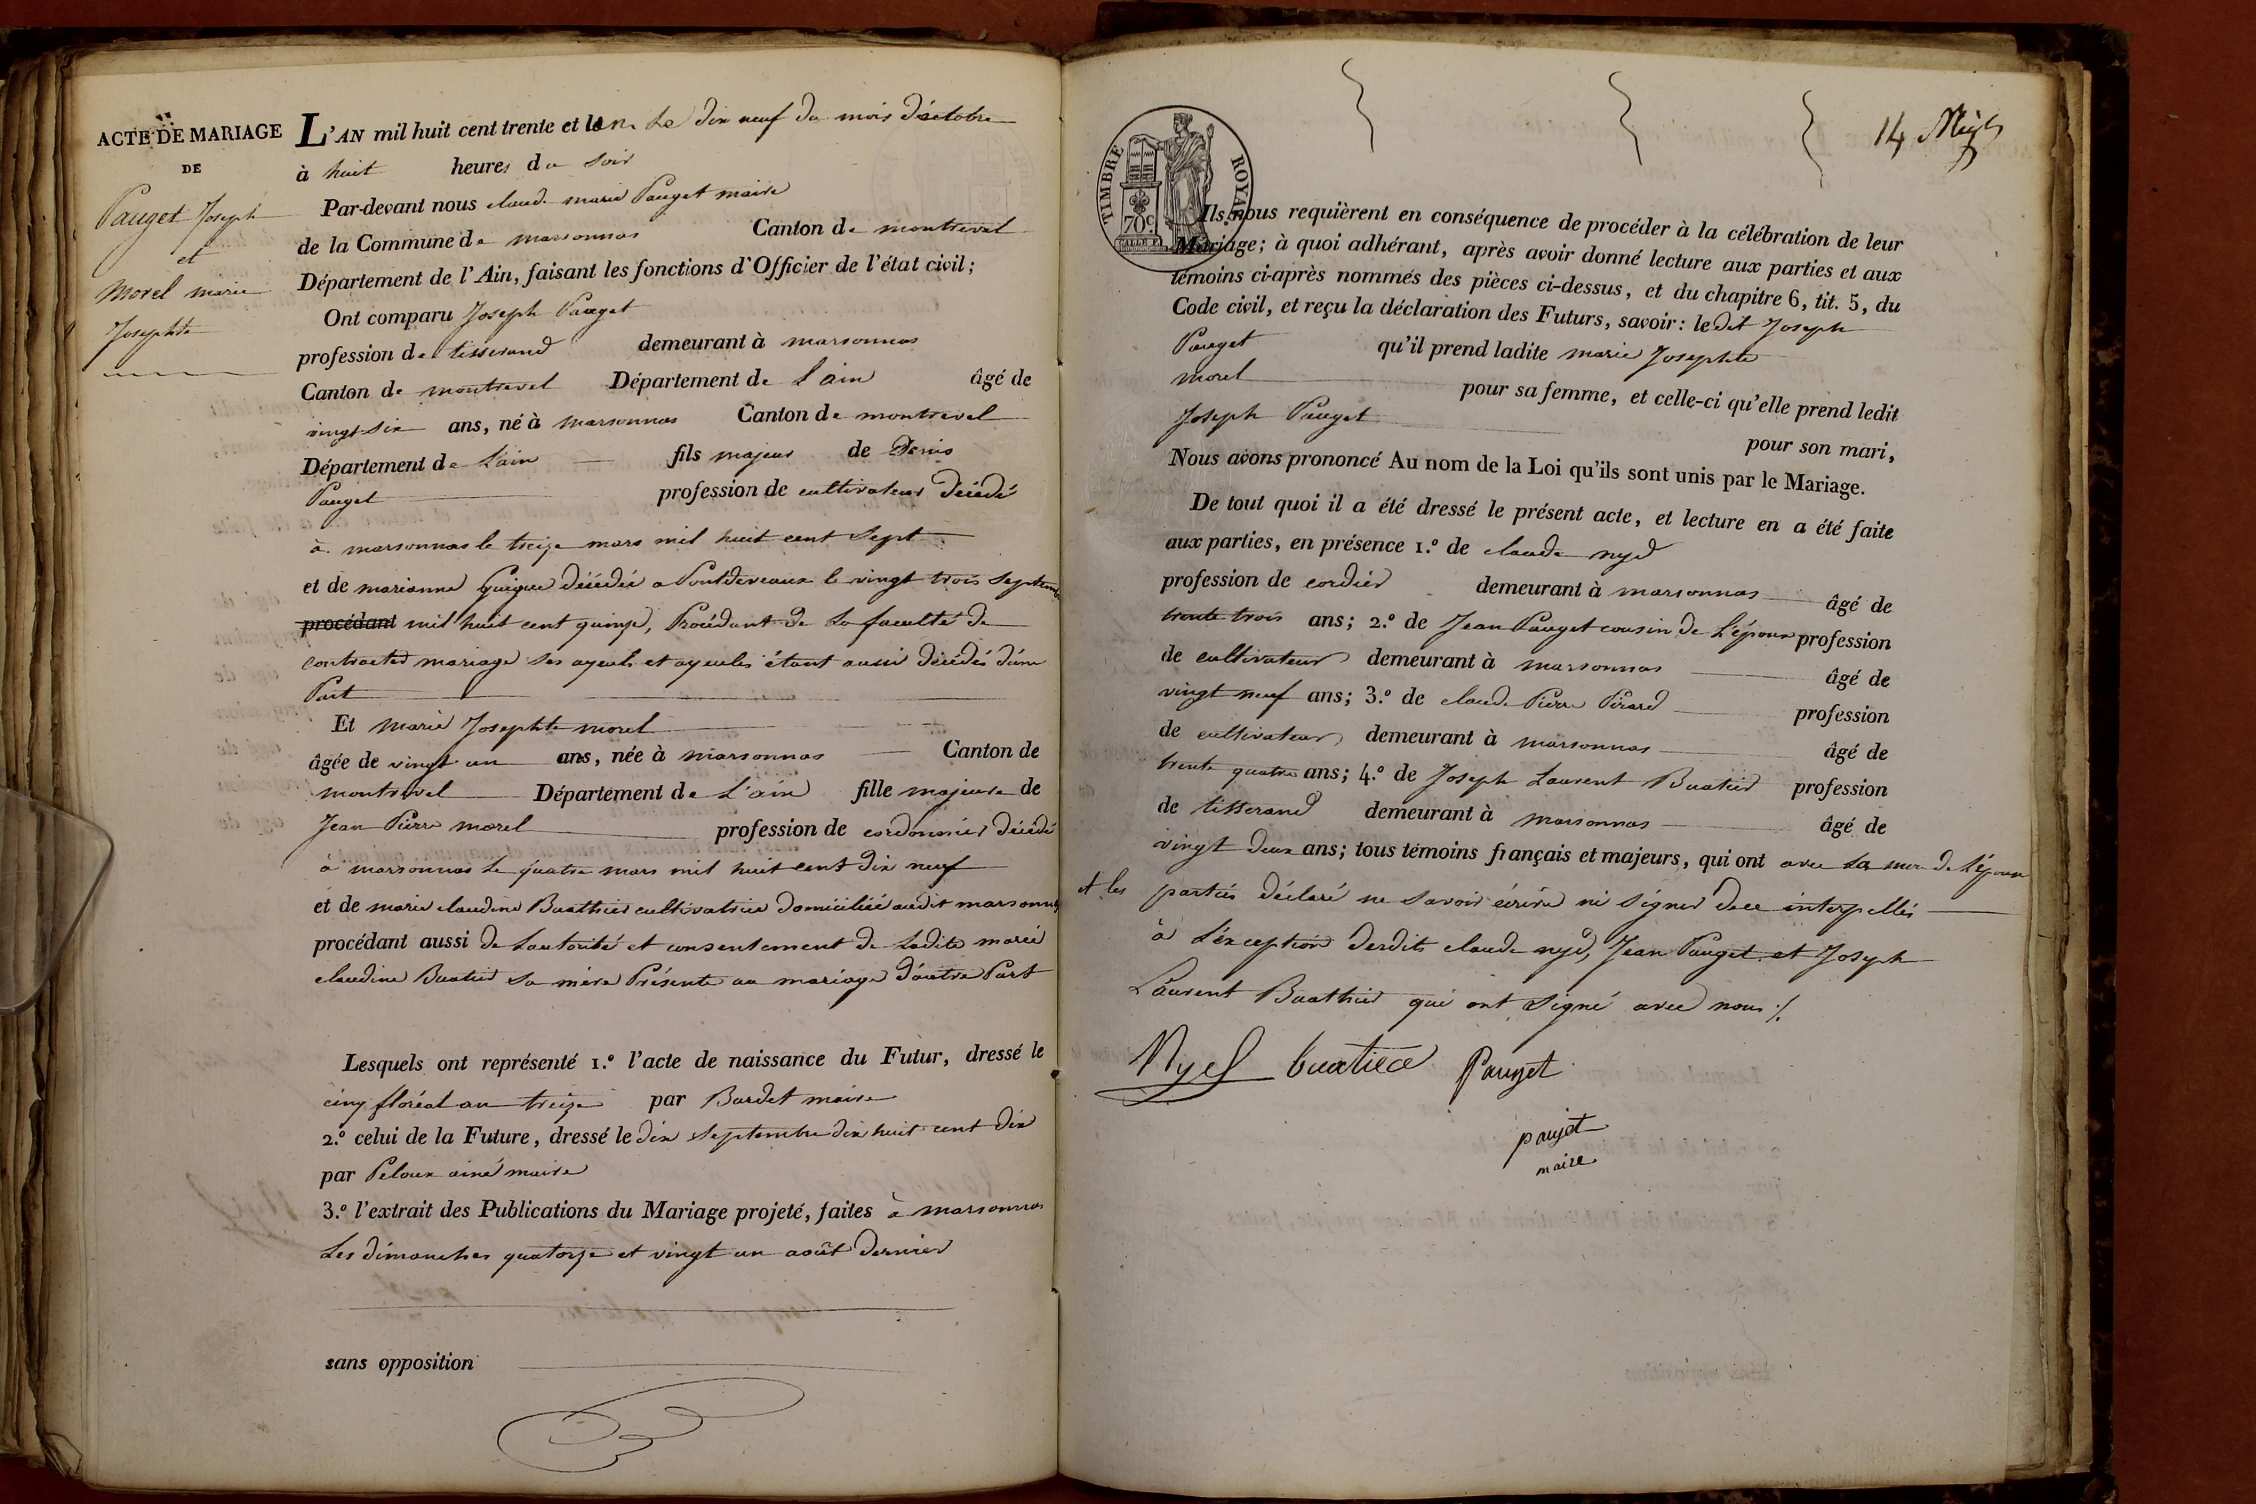 ACTE DE MARIAGE
DE
Pauget Joseph
et
Morel marie
Josephte
L'AN mil huit cent trente et un Le dix neuf du mois d'octobre
à huit heures du soir
Par-devant nous claude marie Pauget maire
de la Commune de marsonnas Canton de montrevel
Département de l'Ain, faisant les fonctions d'Officier de l'état civil;
Ont comparu Joseph Pauget
profession de tisserand demeurant à marsonnas
Canton de montrevel Département de L'ain âgé de
vingt six ans, né à marsonnas Canton de montrevel
Département de L'ain fils majeur de Denis
Pauget profession de cultivateur décédé
à marsonnas le treize mars mil huit cent sept
et de marianne Guigue décédée a Pontdevaux le vingt trois septembre
procédant mil huit cent quinze, Procédant de La faculté de
contracter mariage ses ayeuls et ayeules étant aussi décédés d'une
Part
Et marie Josephte morel
âgée de vingt un ans, née à marsonnas Canton de
montrevel Département de L'ain fille majeure de
Jean Pierre morel profession de cordonnier décédé
à marsonnas Le quatre mars mil huit cent dix neuf
et de marie claudine Buathier cultivatrice domiciliée audit marsonnas
procédant aussi de Lautorité et consentement de Ladite marie
claudine Buatier sa mère Présente au mariage d'autre Part
Lesquels ont représenté 1.º l'acte de naissance du Futur, dressé le
cinq floréal an treize par Bardet maire
2.º celui de la Future, dressé le dix septembre dix huit cent dix
par Peloux ainé maire
3.º l'extrait des Publications du Mariage projeté, faites à marsonnas
Les dimanches quatorze et vingt un août dernier
sans opposition
14
TIMBRE ROYAL
70 c.
Ils nous requièrent en conséquence de procéder à la célébration de leur
Mariage; à quoi adhérant, après avoir donné lecture aux parties et aux
témoins ci-après nommés des pièces ci-dessus, et du chapitre 6, tit. 5, du
Code civil, et reçu la déclaration des Futurs, savoir: ledit Joseph
Pauget qu'il prend ladite marie Josephte
morel pour sa femme, et celle-ci qu'elle prend ledit
Joseph Pauget pour son mari,
Nous avons prononcé Au nom de la Loi qu'ils sont unis par le Mariage.
De tout quoi il a été dressé le présent acte, et lecture en a été faite
aux parties, en présence 1.º de claude nyd
profession de cordier demeurant à marsonnas âgé de
trente trois ans; 2.º de Jean Pauget cousin de L'époux profession
de cultivateur demeurant à marsonnas âgé de
vingt neuf ans; 3.º de claude Pierre Pirard profession
de cultivateur demeurant à marsonnas âgé de
trente quatre ans; 4.º de Joseph Laurent Buatier profession
de tisserand demeurant à marsonnas âgé de
vingt deux ans; tous témoins français et majeurs, qui ont avec La mere de L'épouse
et les parties déclaré ne savoir écrire ni signer de ce interpellés
à L'exception desdits claude nyd, Jean Pauget et Joseph
Laurent Buathier qui ont signé avec nous
Nyd buatier Pauget
paujet
maire